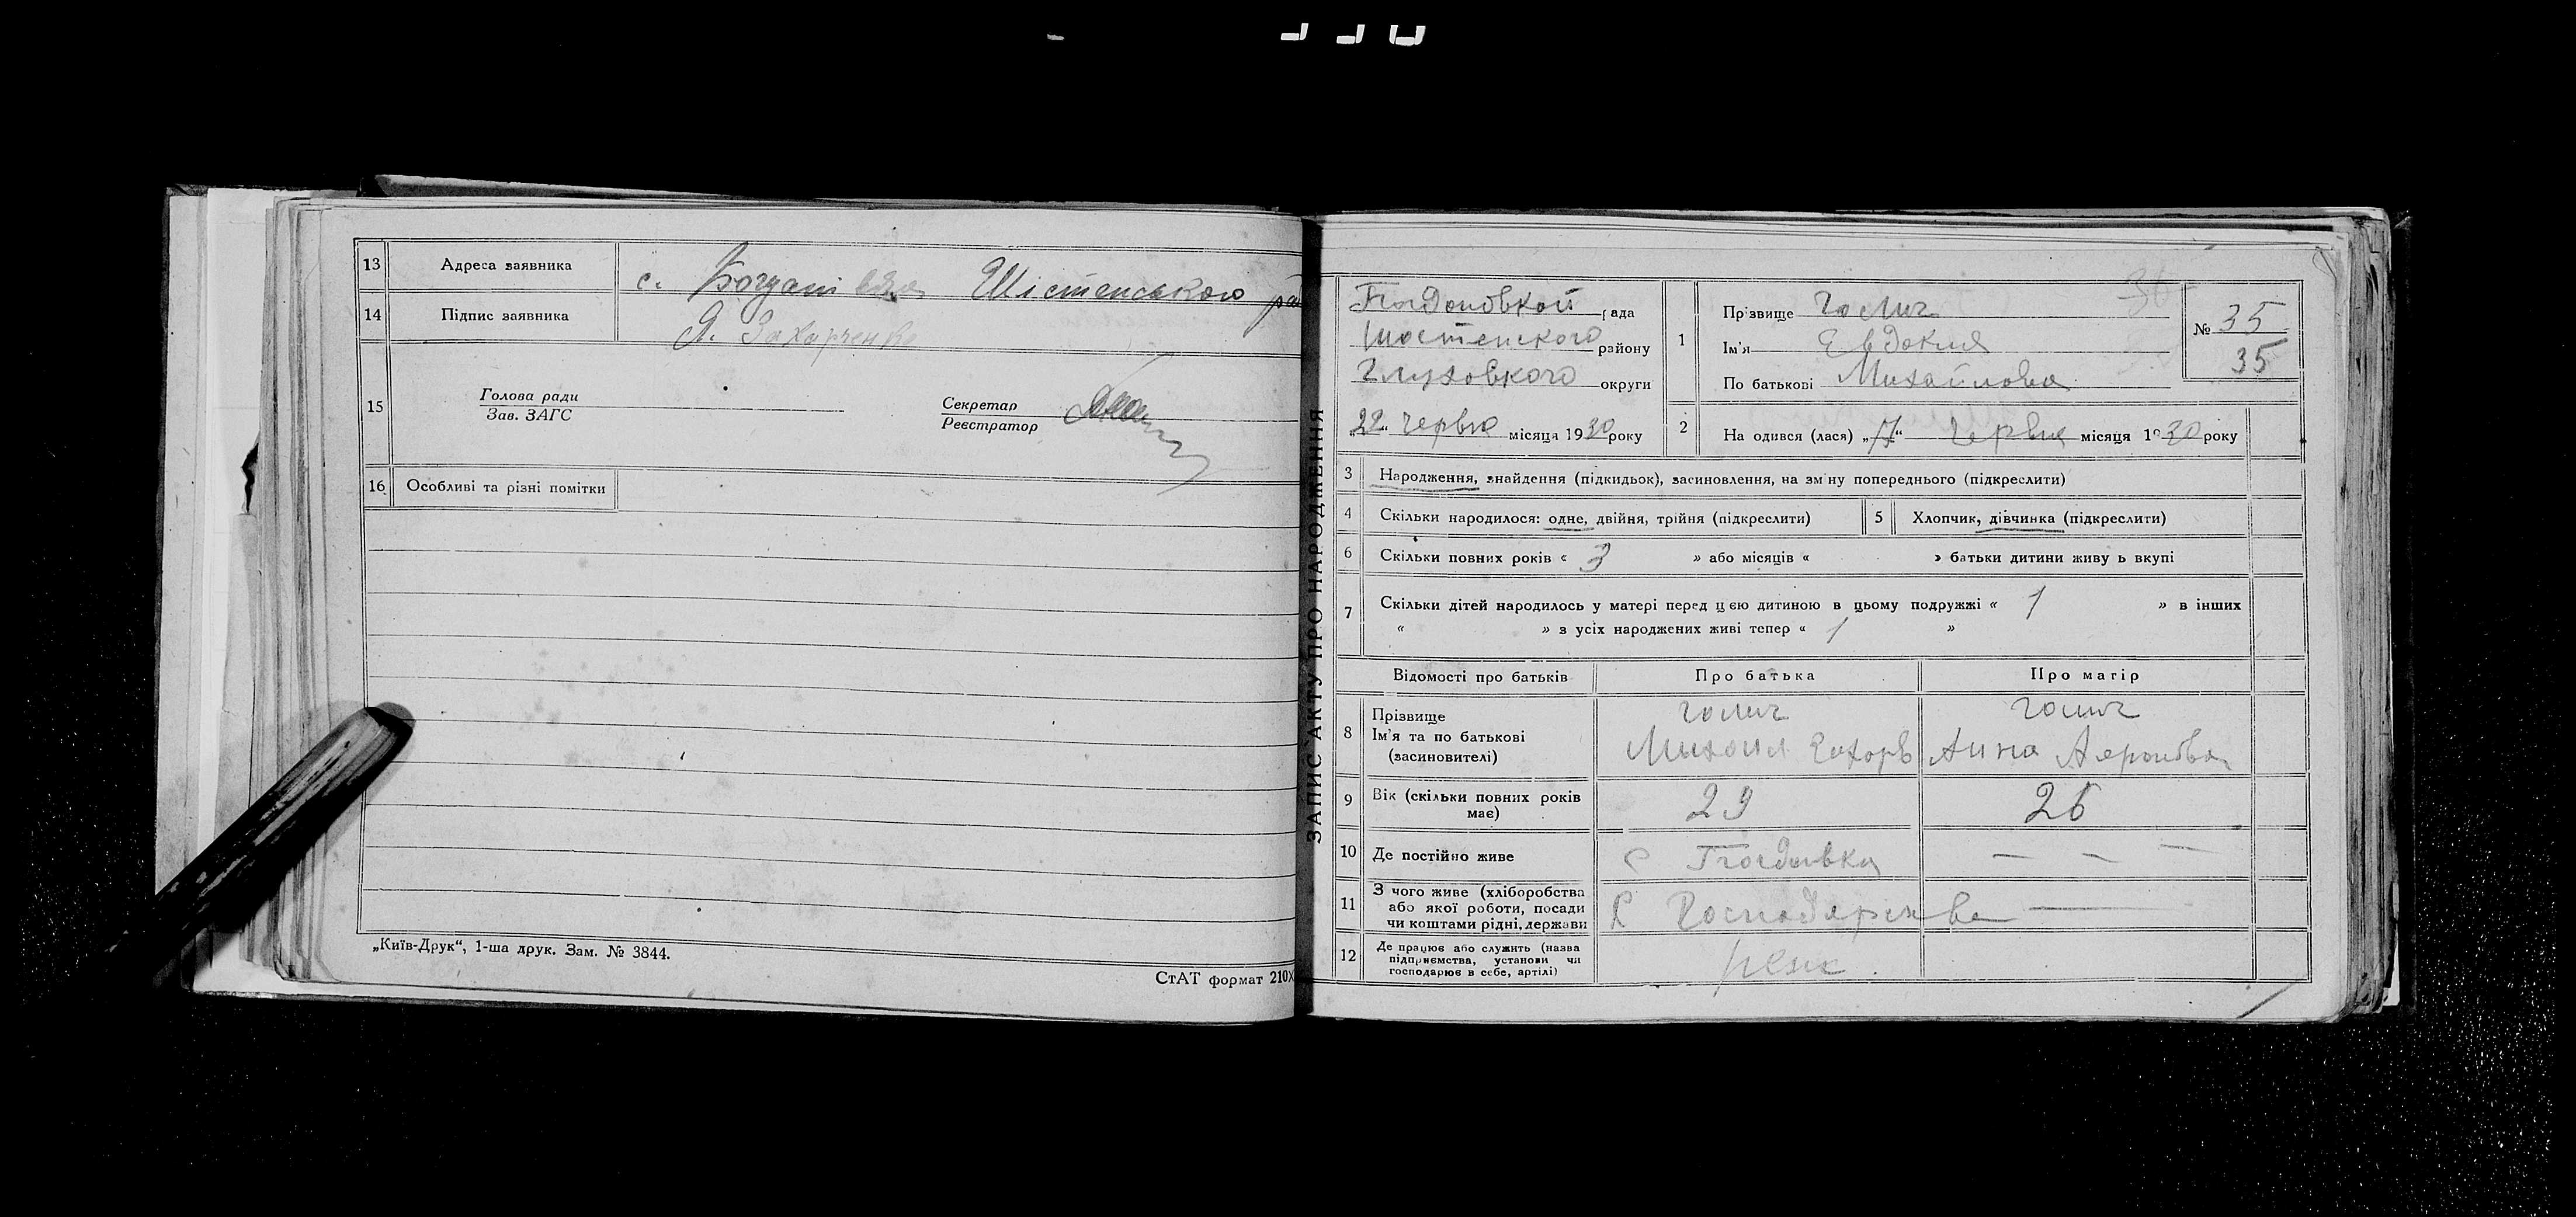 13 Адреса заявника с. Богданівка Шістенського ра
14 Підпис заявника Я. Захарченко
15 Голова ради
Зав. ЗАГС
Секретар
Реєстратор
16 Особливі та різні помітки
„Київ-Друк“, 1-ша друк. Зам. № 3844.
СтАТ формат 210X
ЗАПИС АКТУ ПРО НАРОДЖЕННЯ
Богдоновкой рада
Шостенского району
Глуховкого округи
„22“ червня місяця 1930 року
1 Прізвище Голич
Ім'я Евдокия
По батькові Михайловна
№ 35
35
2 На одився (лася) „17“ червня місяця 1930 року
3 Народження, знайдення (підкидьок), засиновлення, на зміну попереднього (підкреслити)
4 Скільки народилося: одне, двійня, трійня (підкреслити) 5 Хлопчик, дівчинка (підкреслити)
6 Скільки повних років « 3 » або місяців « » батьки дитини живу ь вкупі
7 Скільки дітей народилось у матері перед цією дитиною в цьому подружжі « 1 » в інших
« » з усіх народжених живі тепер « 1 »
Відомості про батьків Про батька Про матір
8 Прізвище Голич Голич
Ім'я та по батькові Михаил Захоров Анна
(засиновителі)
9 Вік (скільки повних років 29 26
має)
10 Де постійно живе с Богдивка — — —
11 З чого живе (хліборобства
або якої роботи, посади
чи коштами рідні, держави
12 Де працює або служить (назва
підприємства, установи чи
господарює в себе, артілі)